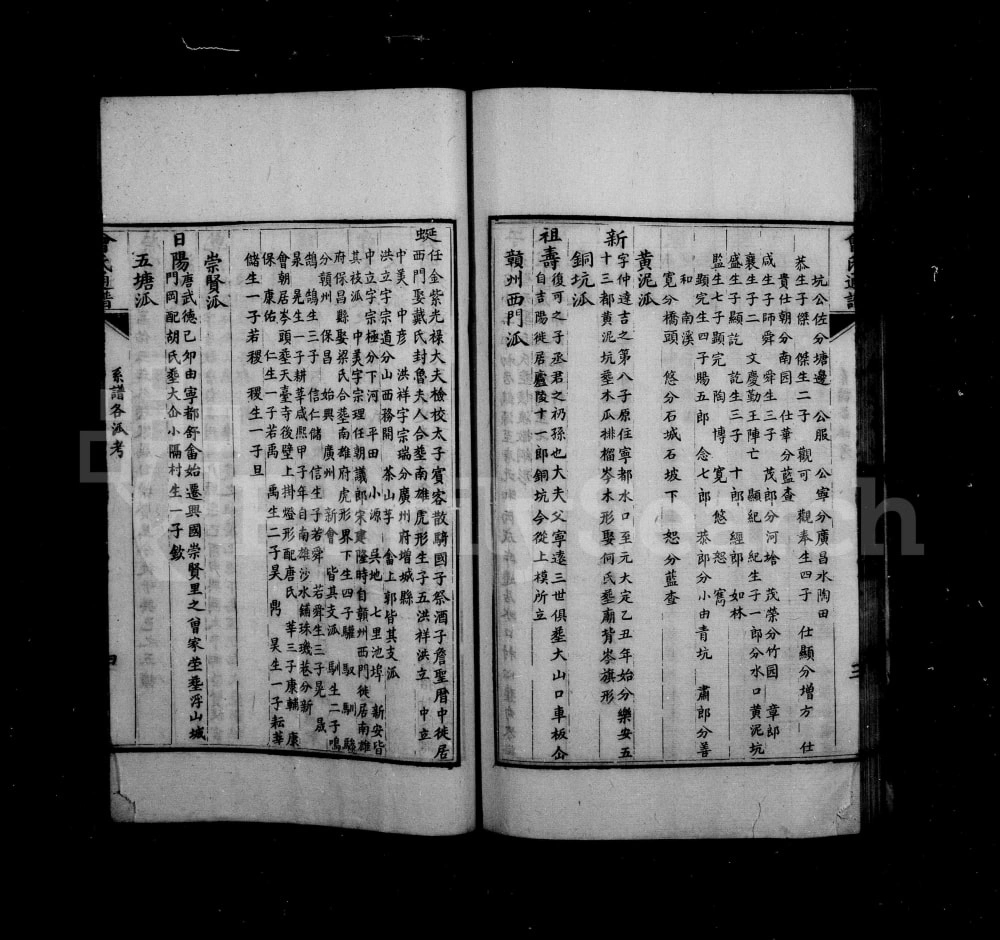 坑公佐分塘邊 公服 公寧分廣昌水陶田
恭生子傑 傑生二子 觀可 觀奉生四子 仕顯分增方 仕
貴仕朝分南園 仕華分藍查
咸生子師舜 舜生三子 茂郎分河 茂榮分竹園 章郎
襄生子二 文慶勤王陣亡 顯紀 紀生子一郎分水口黃泥坑
盛生子顯訖 訖生三子 十郎 經郎 如林
監生七子顯完 陶 博 寬 悠 恕 寯
顯完生四子賜五郎 念七郎 恭郎分小由青坑 肅郎分善
和 南溪
寬分橋頭 悠分石城石坡下 恕分藍查
黃泥派
新字仲達吉之第八子原住寧都水口至元大定乙丑年始分樂安五
十三都黃泥坑塟木瓜排榴岑木形娶何氏塟廟背岑旗形
銅坑派
祖壽復可之子丞君之礽孫也大夫父寧遠三世俱塟大山口車板仚
自吉陽徙居廬陵十一都銅坑今從上模所立
贛州西門派
蜒任金紫光祿大夫檢校太子賓客散騎國子祭酒子詹聖曆中徙居
西門娶戴氏封魯夫人合塟南雄虎形生子五洪祥洪立 中立
中美 中彦 洪祥字宗瑞分廣州府增城縣
洪立字宗道分山西務開 茶山芋 畲上郭皆其支派
中立字宗極分下河 平田 小源 吳地 七里池埠 新安皆
其枝派 中美字宗理任朝議郎宋建隆時自贛州西門徙居南雄
府保昌縣娶梁氏合塟南雄府虎形界下生四子驢 馭 馴 駿
分贛州 保昌 始興 廣州 新會 皆其支派 馴生二子鳴
鵠 鵠生三子 信仁儲 信生子若舜 若舜生三子晃 晟
杲 晃生一子耕華咸熙甲子年自南雄沙水鋪珠璣巷分新
會朝居岑頭塟天臺寺後壁上掛燈形配唐氏 華三子康輔 康
保 康佑 仁生一子若禹 禹生二子昊 鼎 昊生一子耘華
儲生一子若稷 稷生一子旦
崇賢派
日陽唐武德己卯由寧都舒畲始遷興國崇賢里之曾家坣塟浮山城
門岡配胡氏塟大仚小隔村生一子欽
五塘派
系譜各派考